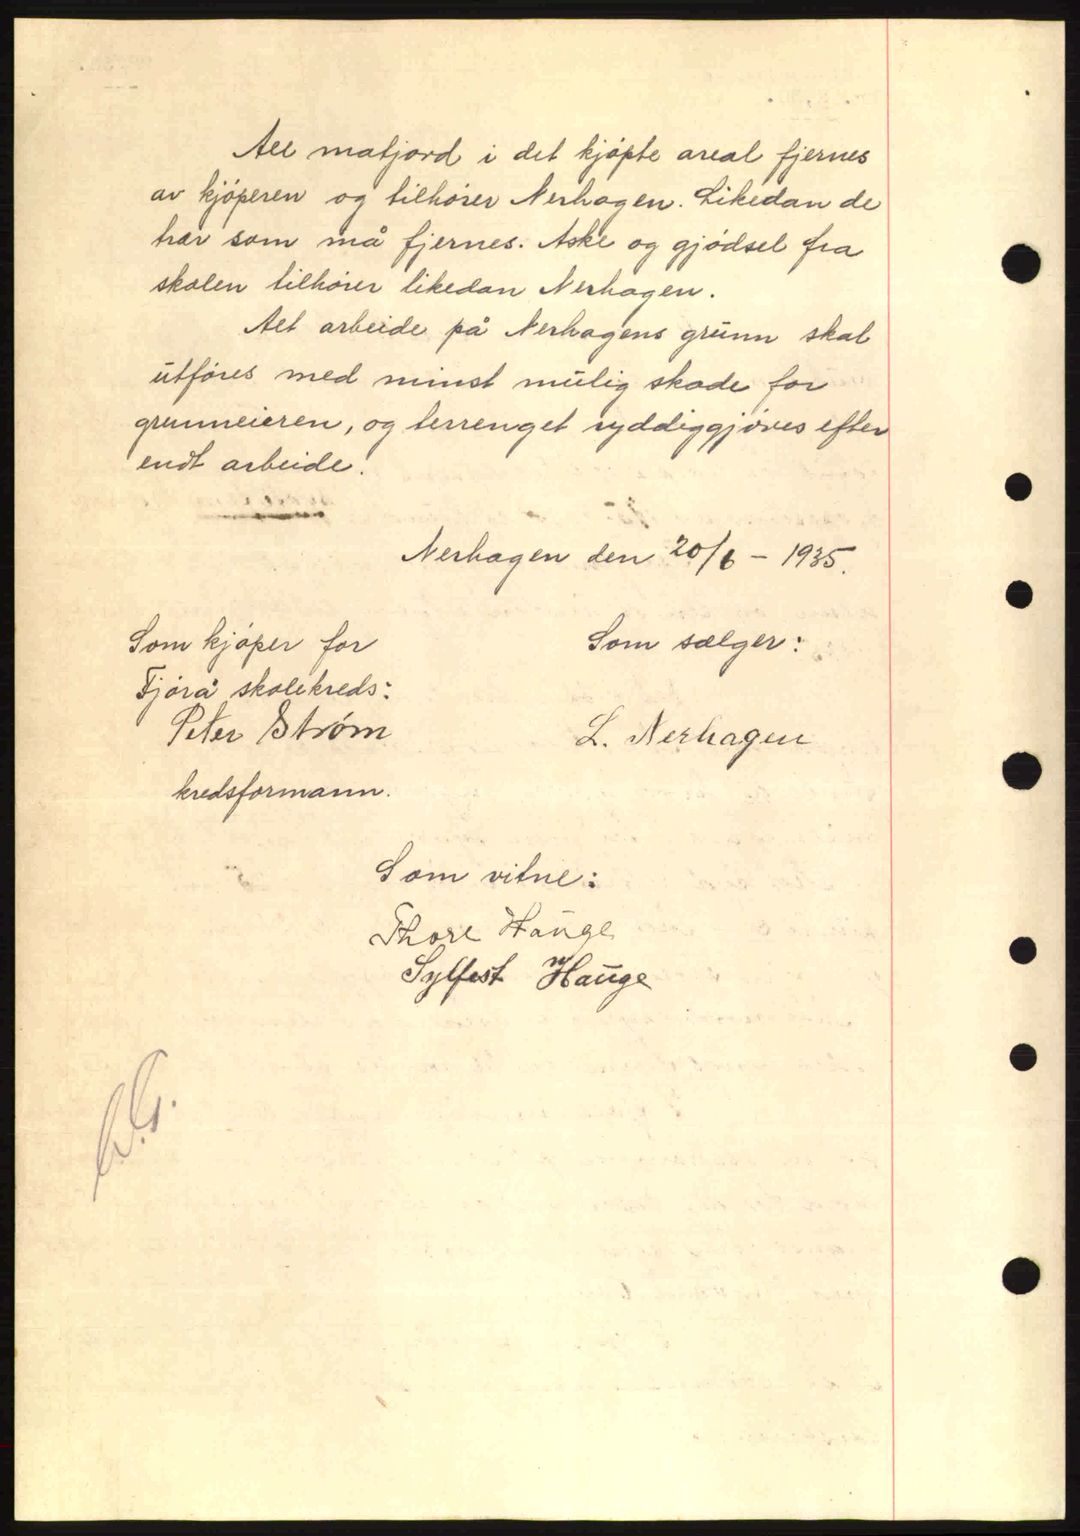 All matjord i det kjøpte areal fjernes
av kjøperen og tilhører Nerhagen. Likedan de
trær som må fjernes. Aske og gjødsel fra
skolen tilhører likedan Nerhagen.
Alt arbeide på Nerhagens grunn skal
utføres med minst mulig skade for
grunneieren, og terrenget ryddiggjøres efter
endt arbeide.
Nerhagen den 20/6 – 1935.
Som kjøper for
Fjørå skolekreds:
Peter Strøm
kredsformann.
Som sælger:
L. Nerhagen
Som vitne:
Thore Hauge
Sylfest Hauge